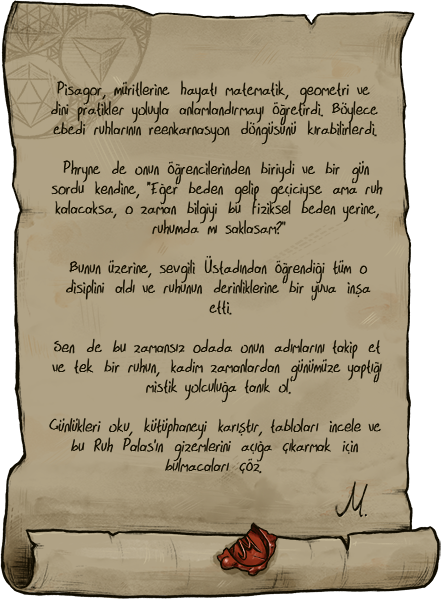 Pisagor, müritlerine hayatı matematik, geometri ve
dini pratikler yoluyla anlamlandırmayı öğretirdi. Böylece
ebedi ruhlarının reenkarnasyon döngüsünü kırabilirlerdi.
Phryne de onun öğrencilerinden biriydi ve bir gün
sordu kendine, "Eğer beden gelip geçiciyse ama ruh
kalacaksa, o zaman bilgiyi bu fiziksel beden yerine,
ruhumda mı saklasam?"
Bunun üzerine, sevgili Üstadından öğrendiği tüm o
disiplini aldı ve ruhunun derinliklerine bir yuva inşa
etti.
Sen de bu zamansız odada onun adımlarını takip et
ve tek bir ruhun, kadim zamanlardan günümüze yaptığı
mistik yolculuğa tanık ol.
Günlükleri oku, kütüphaneyi karıştır, tabloları incele ve
bu Ruh Palas'ın gizemlerini açığa çıkarmak için
bulmacaları çöz.
M.
M